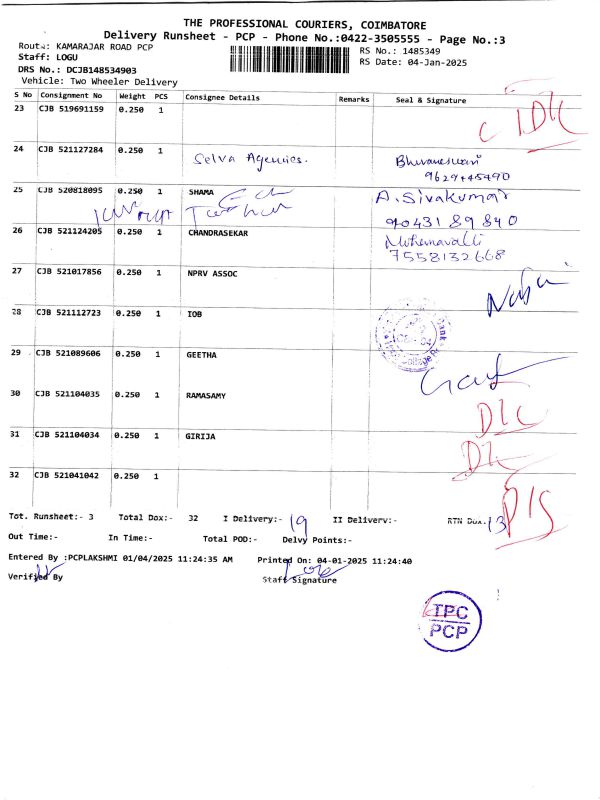 THE PROFESSIONAL COURIERS, COIMBATORE
Delivery Runsheet - PCP - Phone No.:0422-3505555 - Page No.:3
Route: KAMARAJAR ROAD PCP
RS No.: 1485349
Staff: LOGU
RS Date: 04-Jan-2025
DRS No.: DCJB148534903
Vehicle: Two Wheeler Delivery
S No Consignment No Weight PCS Consignee Details Remarks Seal & Signature
23 CJB 519691159 0.250 1
24 CJB 521127284 0.250 1 Selva Agencies. Bhuvaneswari
9629445490
25 CJB 520818095 0.250 1 SHAMA A. Sivakumar
90431 89840
26 CJB 521124205 0.250 1 CHANDRASEKAR
7558132668
27 CJB 521017856 0.250 1 NPRV ASSOC
28 CJB 521112723 0.250 1 IOB
29 CJB 521089606 0.250 1 GEETHA
30 CJB 521104035 0.250 1 RAMASAMY DLC
31 CJB 521104034 0.250 1 GIRIJA
32 CJB 521041042 0.250 1
Tot. Runsheet:- 3 Total Dox:- 32 I Delivery:- 19 II Delivery:- RTN Dox:- 13
Out Time:- In Time:- Total POD:- Delvy Points:-
Entered By :PCPLAKSHMI 01/04/2025 11:24:35 AM Printed On: 04-01-2025 11:24:40
Verified By Staff Signature
TPC
PCP